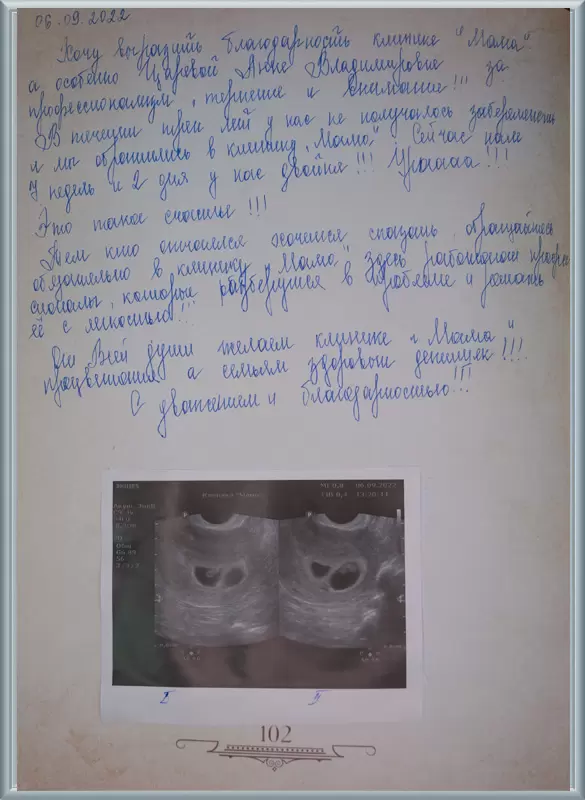 06.09.2022
Хочу выразить благодарность клинике "Мама"
а особенно Царевой Анне Владимировне за
профессионализм, терпение и внимание!!!
В течении трёх лет у нас не получалось забеременеть
и мы обратились в клинику "Мама". Сейчас нам
7 недель и 2 дня у нас двойня!!! Урааааа!!!
Это такое счастье!!!
Тем кто отчаялся хочется сказать, обращайтесь
обязательно в клинику "Мама" здесь работают профес-
сионалы, которые разберутся в проблеме и решат
её с легкостью!!!
От Всей души желаем клинике "Мама"
процветания а семьям здоровых детишек!!!
С уважением и благодарностью!!!
06.09.2022
I
II
102